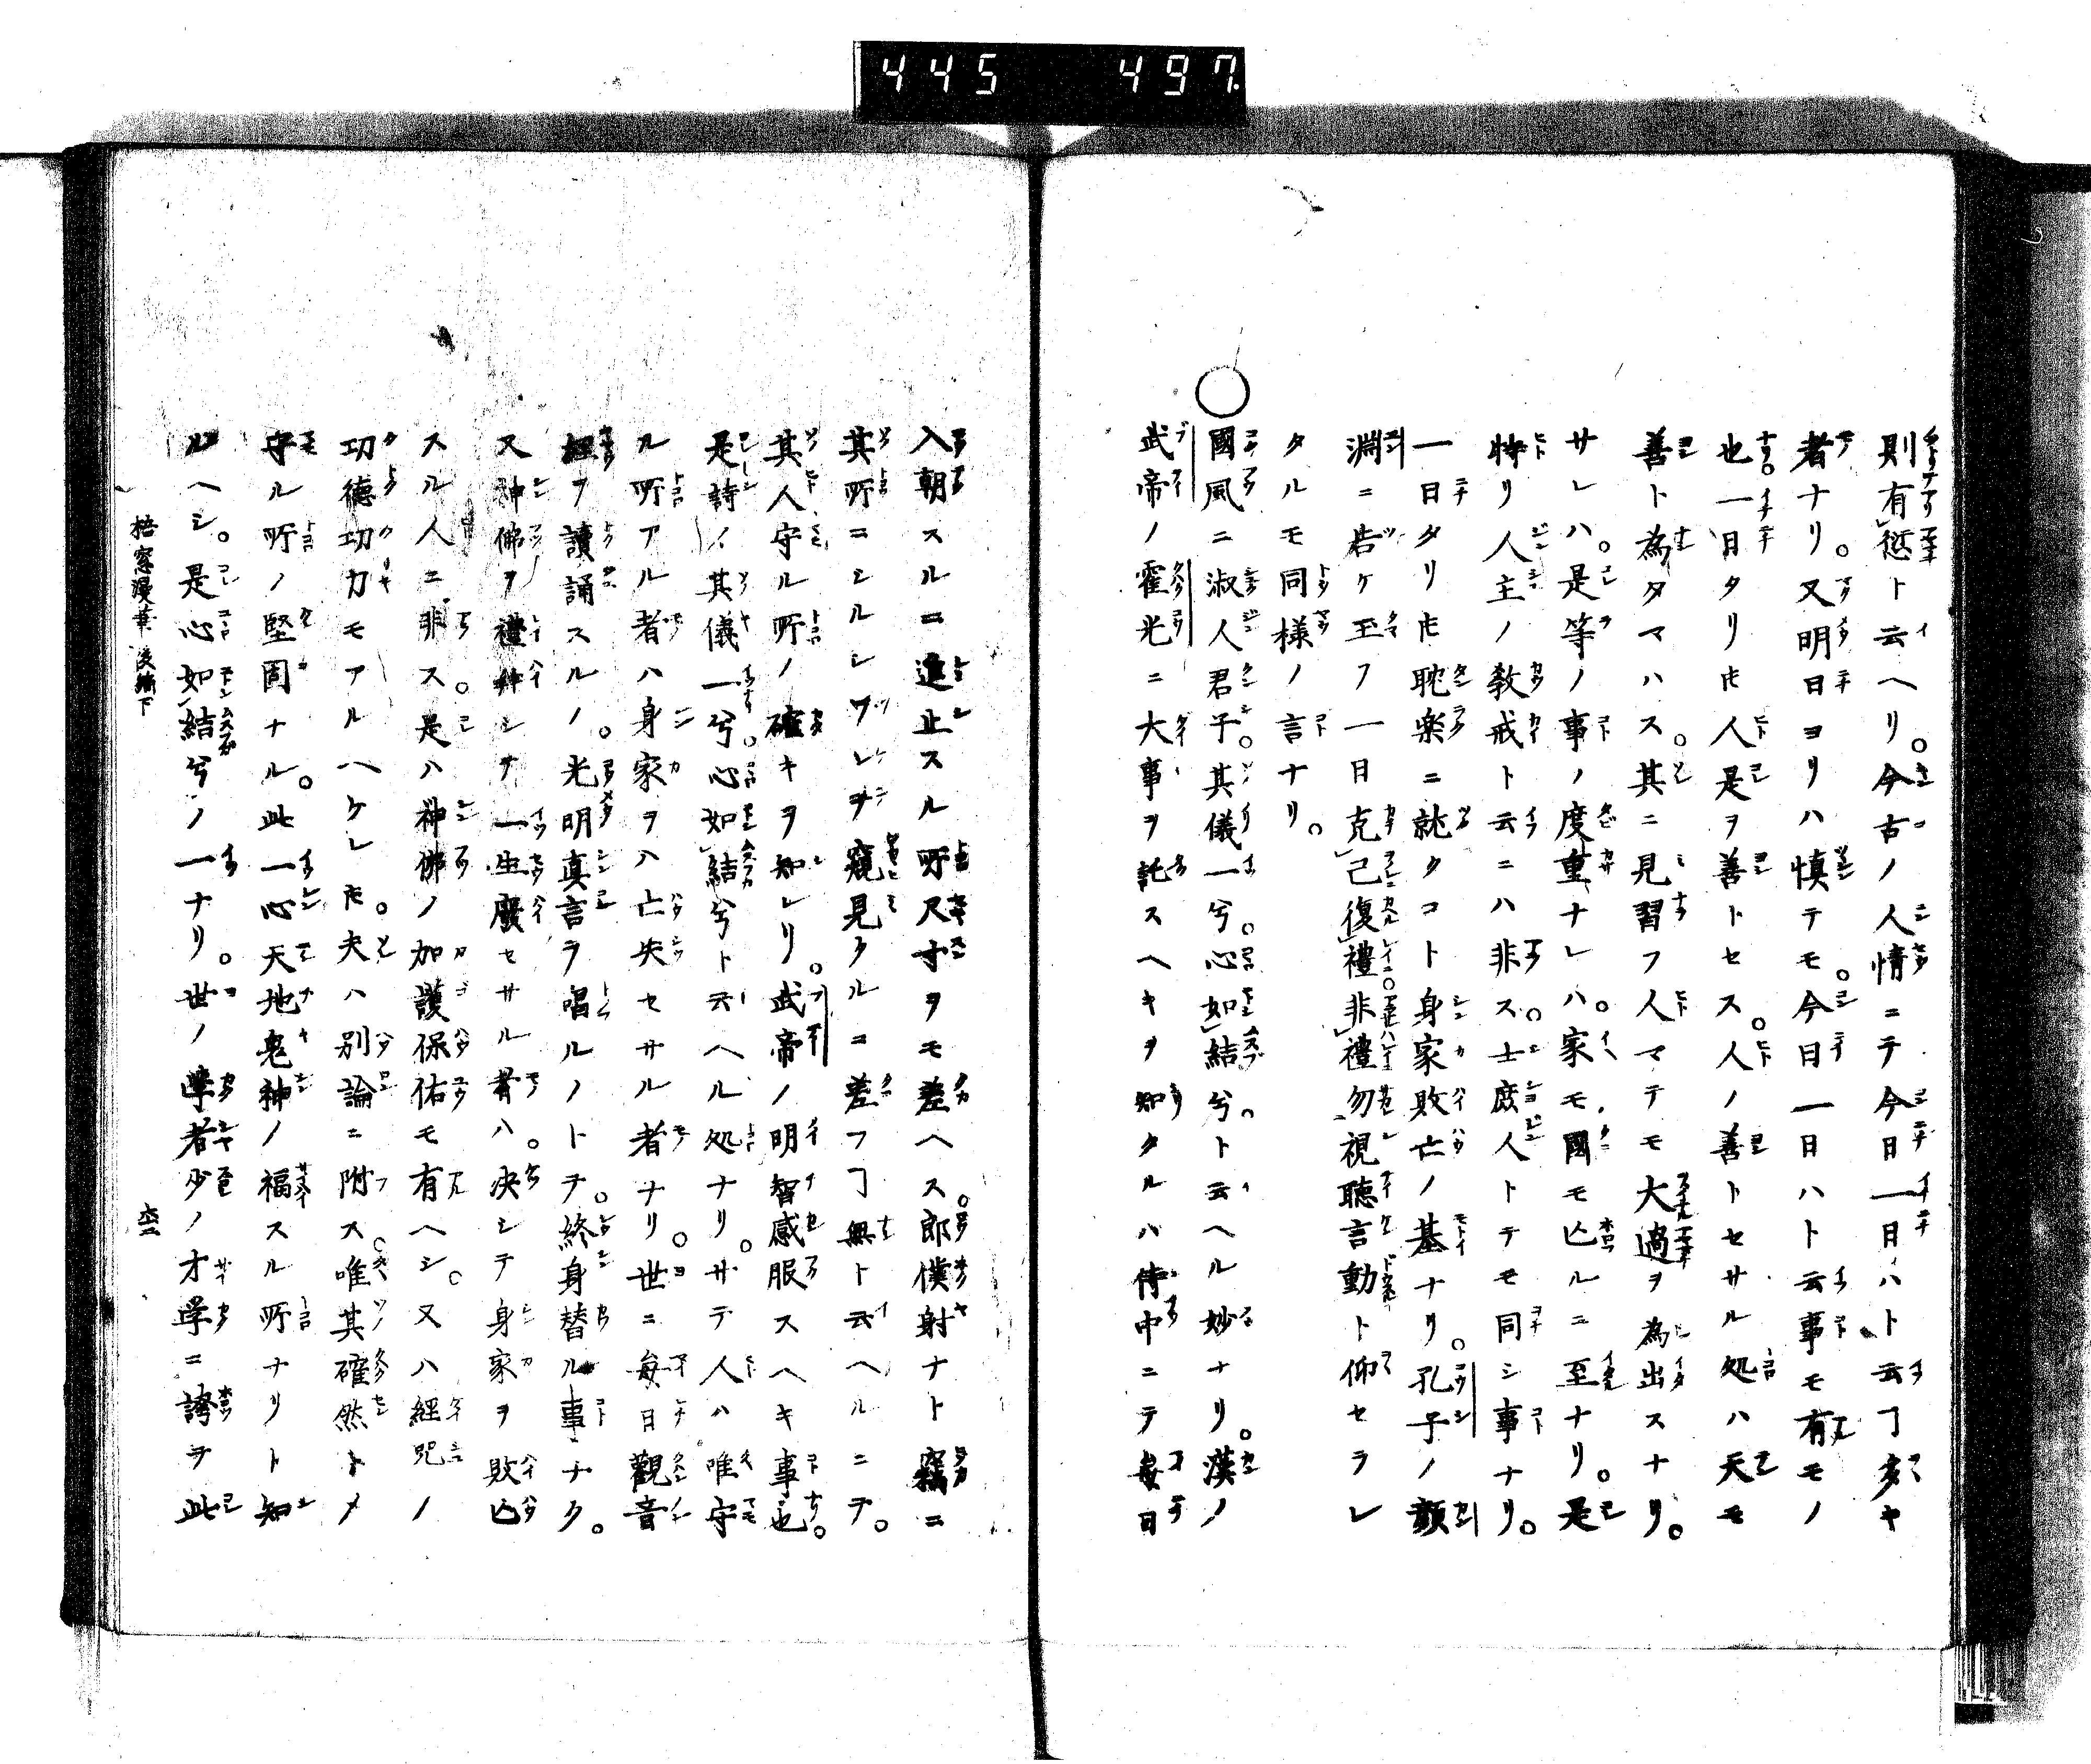 445 497.
則有愆ト云ヘリ。今古ノ人情ニテ今日一日ハト云ヿ多キ
者ナリ。又明日ヨリハ慎テモ。今日一日ハト云事モ有モノ
也。一日タリ𪜈人是ヲ善トセス。人ノ善トセサル処ハ天モ
善ト為タマハス。其ニ見習フ人マテモ大過ヲ為出スナリ。
サレハ。是等ノ事ノ度重ナレハ。家モ國モ亾ルニ至ナリ。是
特リ人主ノ敎戒ト云ニハ非ス。士庶人トテモ同シ事ナリ。
一日タリ𪜈耽楽ニ就クコト身家敗亡ノ基ナリ。孔子ノ顔
淵ニ告ケ玉フ一日克己復禮。非禮勿視聽言動ト仰セラレ
タルモ同様ノ言ナリ。
○國風ニ淑人君子。其儀一兮。心如結兮。ト云ヘル妙ナリ。漢ノ
武帝ノ霍光ニ大事ヲ託スヘキヲ知タルハ侍中ニテ每日
入朝スルニ進止スル所尺寸ヲモ差ヘス。郎僕射ナト竊ニ
其所ニシルシヲ窺見タルニ差フヿ無ト云ヘルニテ。
其人守ル所ノ確キヲ知レリ。武帝ノ明智感服スヘキ事也。
是詩ノ其儀一兮。心如結兮ト云ヘル処ナリ。サテ人ハ唯守
ル所アル者ハ身家ヲハ亡失セサル者ナリ。世ニ每日觀音
經ヲ讀誦スルノ。光明真言ヲ唱ルノトテ。終身替ル事ナク。
又神佛ヲ禮拜シテ一生廢セサル者ハ。决シテ身家ヲ敗亾
スル人ニ非ス。是ハ神佛ノ加護保佑モ有ヘシ。又ハ經咒ノ
功德功力モアルヘケレ𪜈。夫ハ别論ニ附ス。唯其確然トメ
守ル所ノ堅固ナル。此一心天地鬼神ノ福スル所ナリト知
ルヘシ。是心如結兮ノ一ナリ。世ノ學者少ノ才学ニ誇ヲ此
梧窓漫筆 後編下